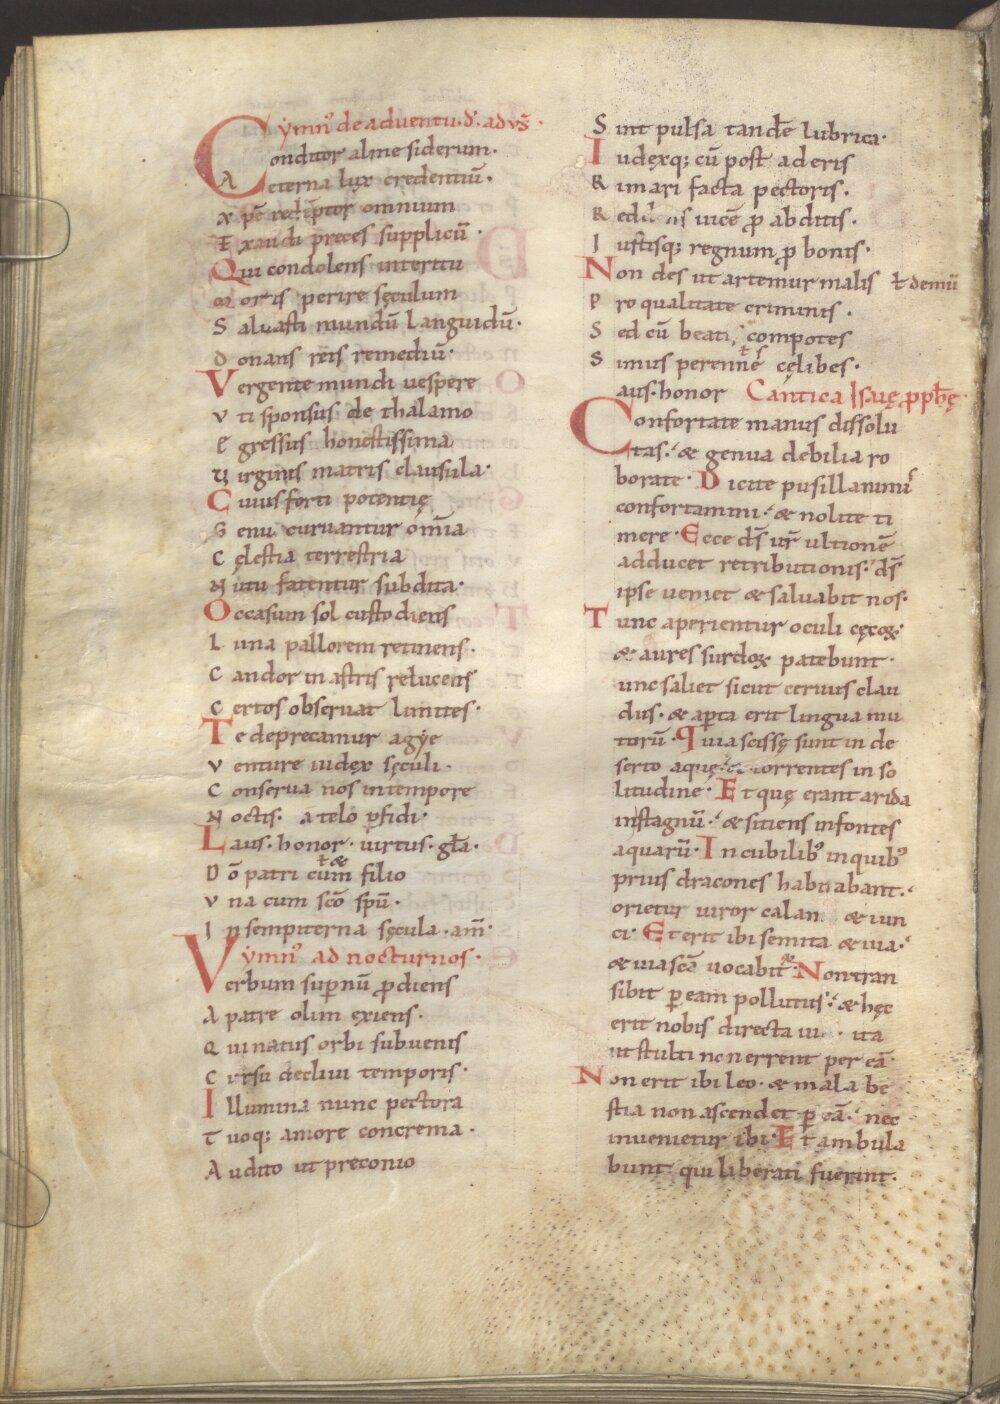 ẏmn᷒ de aduentu. dı̄. ad vs̄.
Conditor alme siderum.
Aeterna lux credentiū.
xpē redēptor omnium
Exaudi preces supplicū.
Qui condolens interitu
mortis perire sęculum
Saluasti mundū languidū.
donans reis remediū.
Vergente mundi uespere
vti sponsus de thalamo
egressus honestissima
Virginis matris clausula.
Cuius forti potentię
Genu curuantur om̄ia
Cęlestia terrestria
Nutu fatentur subdita.
Occasum sol custodiens
Luna pallorem retinens.
Candor in astris relucens
Certos obseruat limites.
Te deprecamur agẏe
venture iudex sęculi.
Conserua nos in tempore
Noctis. a telo ꝑfidi.
Laus. honor. uirtus. gl̄a.
Dō patri cum ł & filio
vna cum sc̄o spū.
In sempiterna sęcula. am̄.
ẏmn᷒ ad nocturnos.
Verbum suꝑnū ꝓdiens
A patre olim exiens.
Qui natus orbi subuenis
Cursu decliui temporis.
Illumina nunc pectora
Tuoq; amore concrema.
Audito ut preconio
Sint pulsa tandē lubrica.
Iudexq; cū post aderis
Rimari facta pectoris.
uicē ꝓ abditis.
Iustisq; regnum ꝓ bonis.
Non des ut artemur malis ł demū
Pro qualitate criminis.
Sed cū beati compotes
Simus perenne ł s cęlibes.
aus. honor Cantica Isaię ꝓph̄ę.
Confortate manus dissolu
tas. & genua debilia ro
borate. Dicite pusillanimi
confortamini. & nolite ti
mere. Ecce ds̄ ur̄ ultionē
adducet retributionis. ds̄
ipse ueniet & saluabit nos.
Tunc aperientur oculi cęcoꝝ.
& aures surdoꝝ patebunt.
unc saliet sicut ceruus clau
dus. & aꝑta erit lingua mu
torū. Quia scissę sunt in de
serto aquę. & torrentes in so
litudine. Et quę erant arida
in stagnū. & sitiens in fontes
aquarū. In cubilib᷒ in quib᷒
prius dracones habitabant.
orietur uiror calami & iun
ci. Et erit ibi semita & uia.
& uia sc̄a uocabit᷑. Non tran
sibit ꝑ eam pollutus. & hęc
erit nobis directa ui ita
ut stulti non errent per eā.
Non erit ibi leo. & mala be
stia non ascendet ꝑ eā. nec
inuenietur ibi. Et ambula
bunt qui liberati fuerint.